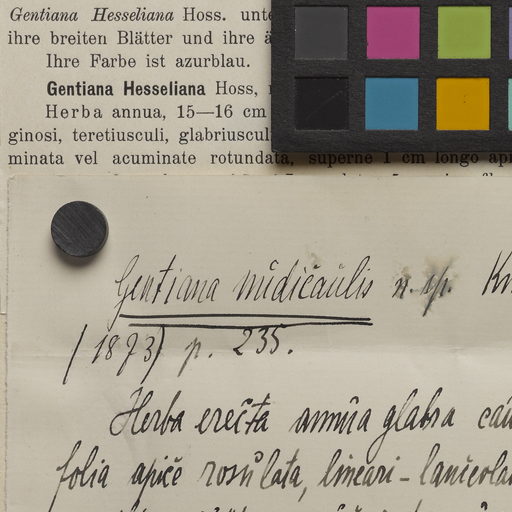 Gentiana Hesseliana Hoss.
ihre breiten Blätter und ihre
Ihre Farbe ist azurblau.
Gentiana Hesseliana Hoss,
Herba annua, 15—16 cm
ginosi, teretiusculi,
minata vel acuminate rotundata, superne 1 cm longo
Gentiana nudicaulis n. sp.
(1873) p. 235.
Herba erecta annua glabra
folia apice rosulata,